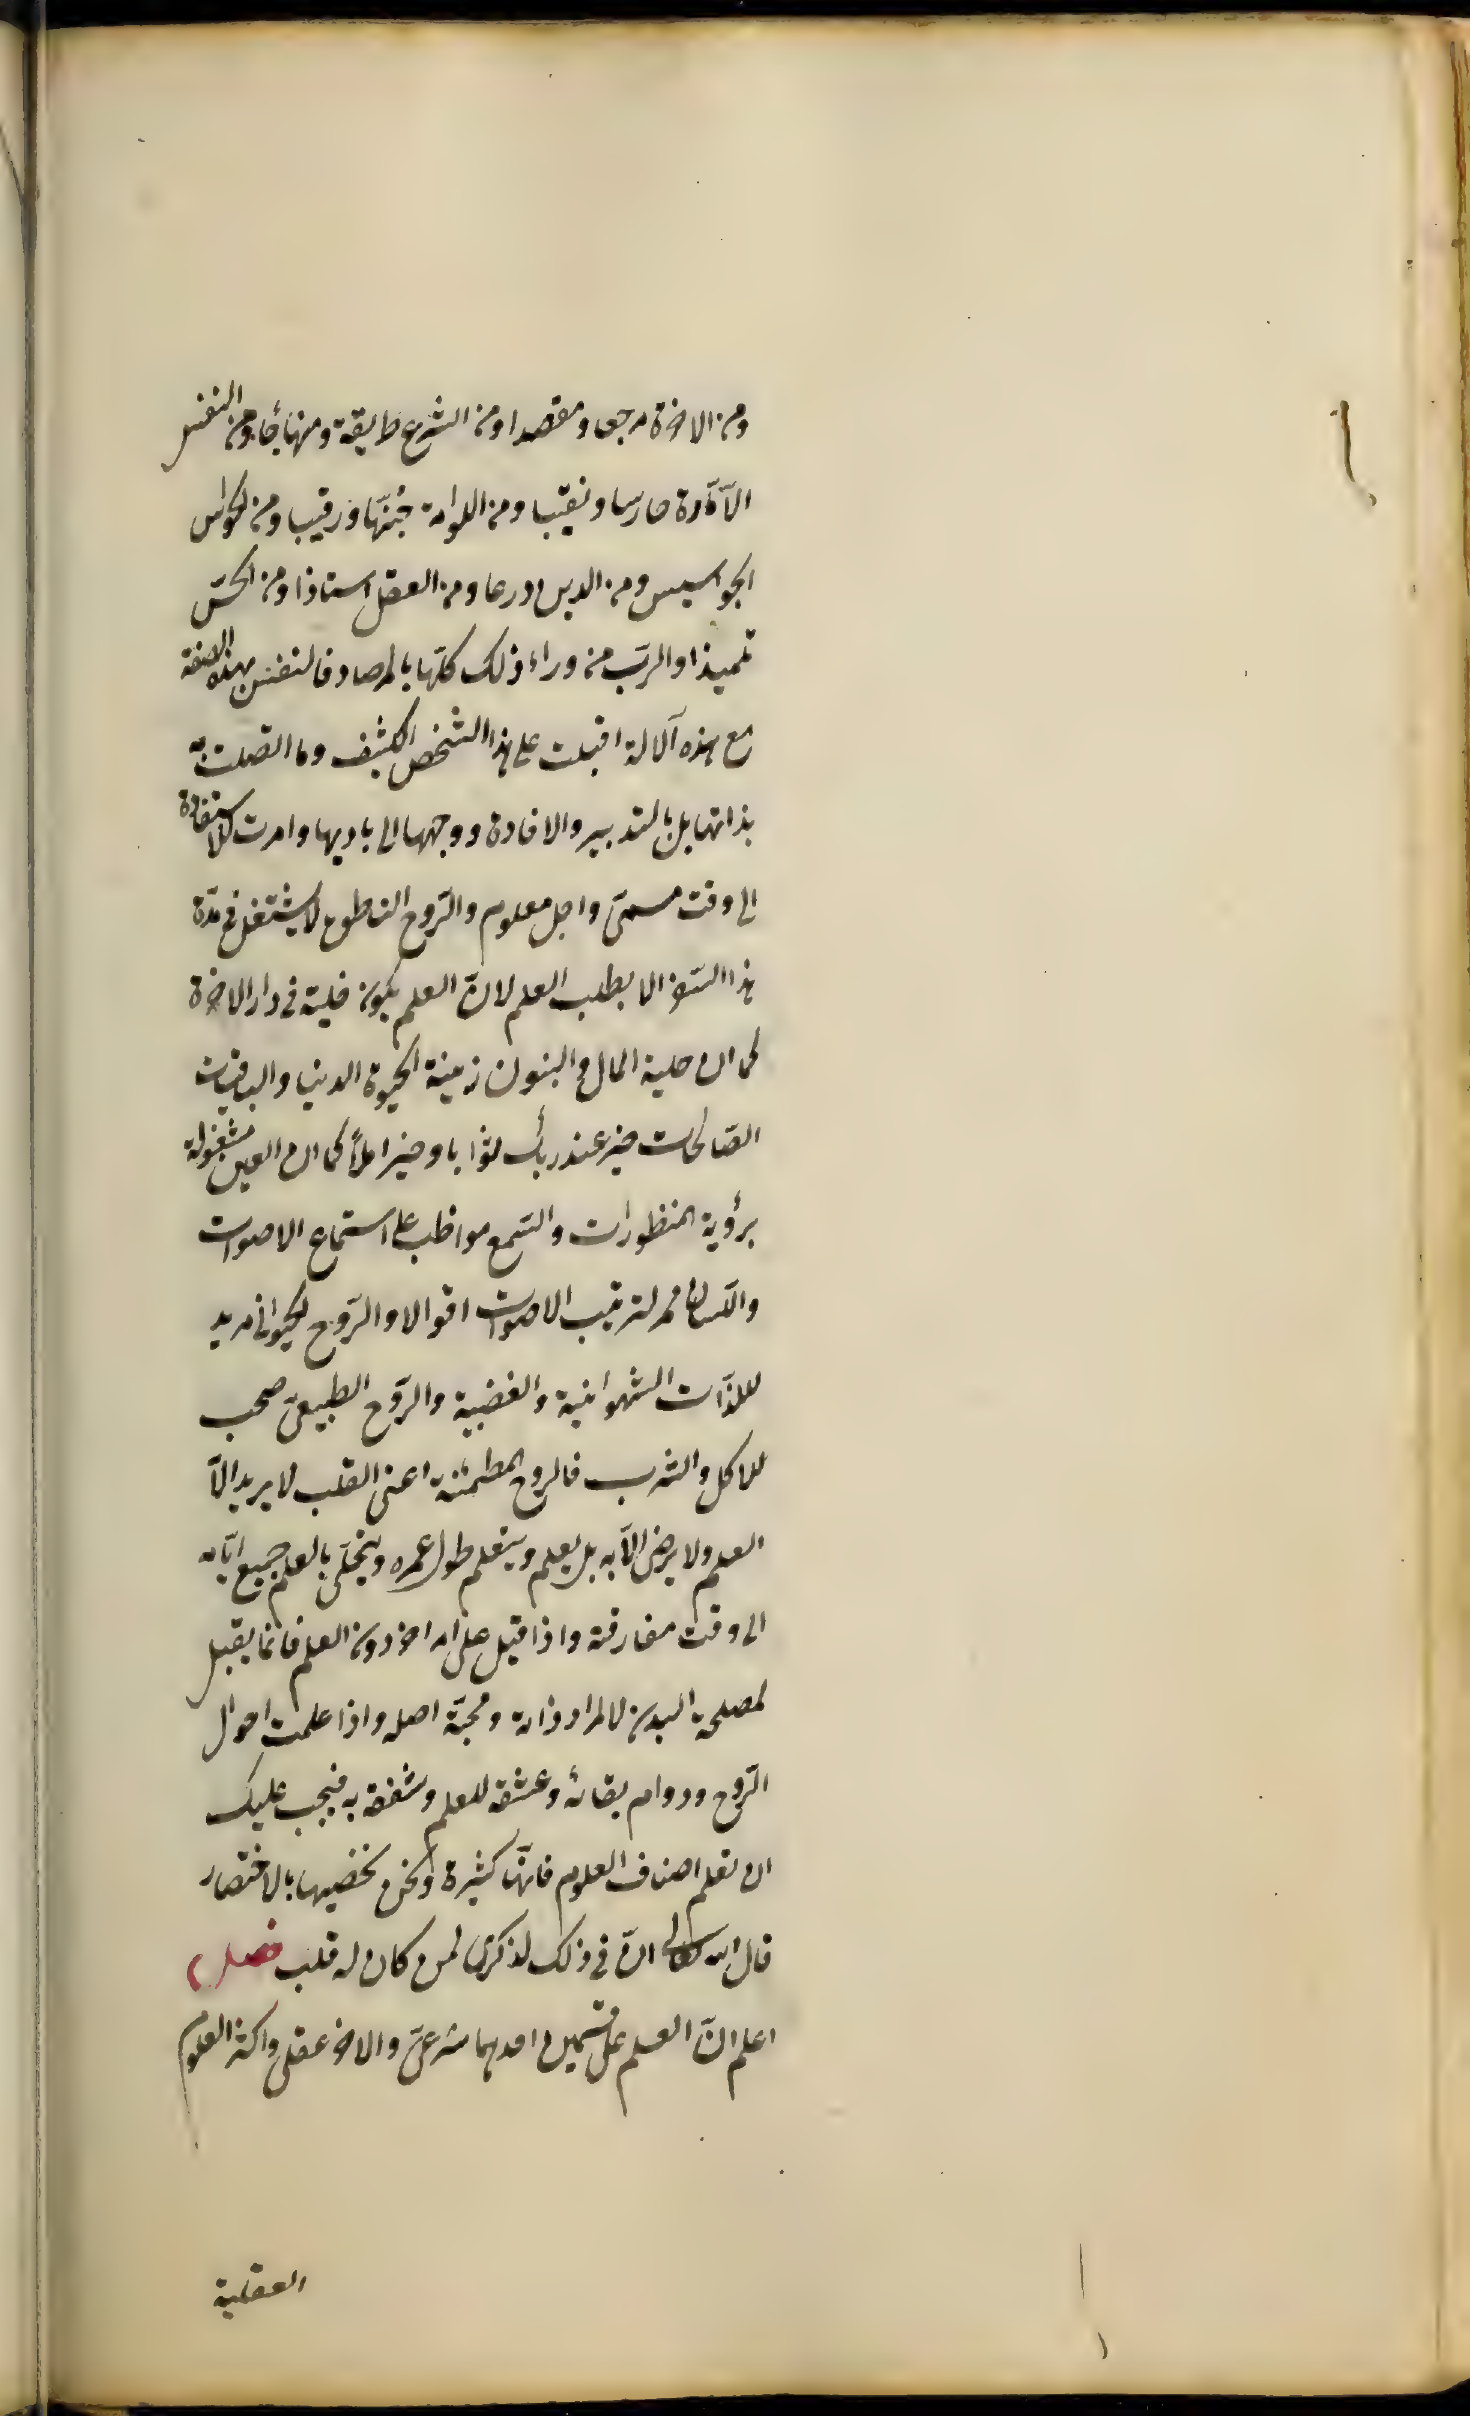 ومن الاخرة مرجعا ومقصدا ومن الشرع طريقة ومنهاجا ومن النفس
الامّارة حارسا ونقيبا ومن اللوامة منبّها ورقيبا ومن الحواس
الجواسيس ومن الدين درعا ومن العقل استاذا ومن الحسّ
تلميذا والربّ من وراء ذلك كلّها بالمرصاد فالنفس بهذه الصفة
مع هذه الالة اقبلت على هذا الشخص الكثيف وما اتصلت به
بذاتها بل بالتدبير والافادة ووجهها الى باريها وامرت بالاستفادة
الى وقت مسمّى واجل معلوم والرّوح الناطق لا يشتغل في مدّة
هذا السّفر الا بطلب العلم لانّ العلم يكون حلية في دار الاخرة
كما ان حلية المال والبنون زينة الحيوة الدنيا والباقيات
الصّالحات خير عند ربك ثوابا وخير املاً كما ان العين مشغولة
برؤية المنظورات والسّمع مواظب على استماع الاصوات
واللّسان لترتيب الاصوات اقوالا والرّوح الحيواني مريد
للذّات الشهوانية والغضبية والرّوح الطبيعيّ محب
للاكل والشرب فالروح المطمئنة اعنى القلب لا يريد الّا
العلم ولا يرضى الّا به بل يعلم ويتعلم طول عمره ويتحلّى بالعلم جميع ايّامه
الى وقت مفارقته واذا قبل على امر اخر دون العلم فانما يقبل
لمصلحة البدن لا لمراد ذاته ومحبّة اصله واذا علمت احوال
الرّوح ودوام بقائه وعشقه للعلم وشغفه به فيجب عليك
ان تعلم اصناف العلوم فانّها كثيرة ونحن نحصيها بالاختصار
قال الله تعالى انّ في ذلك لذكرى لمن كان له قلب فصل
اعلم انّ العلم على قسمين احدهما شرعىّ والاخر عقلى واكثر العلوم
العقلية